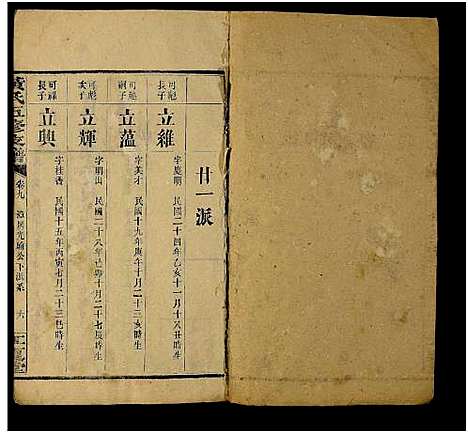 廿一派
可彪長子
立維
字慶明 民國二十四年乙亥十一月十又丑時生
可彪嗣子
立蘊
字美才 民國十九年庚午十月十三亥時生
可彪次子
立輝
字明山 民國二十八年己卯十月二十七辰時生
可祿長子
立興
字桂香 民國十五年丙寅七月二十三巳時生
黃氏五修支譜
卷九
公下派系 六